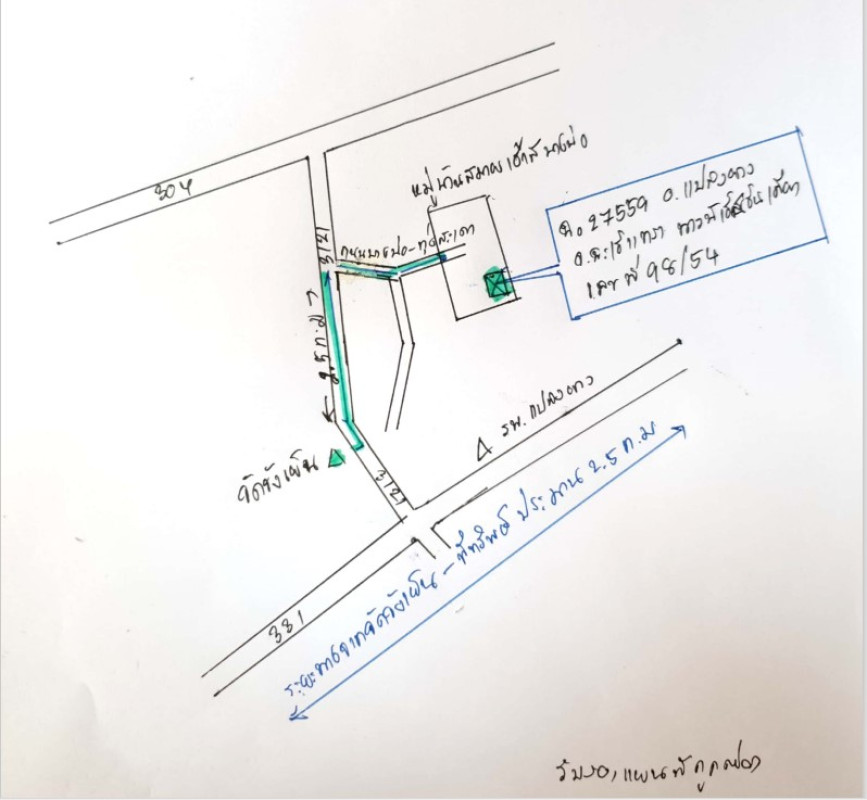 304
หมู่บ้าน
ฉ. 27559 อ.แปลงยาว
จ.ฉะเชิงเทรา
เลขที่ 98/54
3121
ถนน
2.5 ก.ม
วัดวังเย็น
รพ. แปลงยาว
3121
ระยะทางจากวัดวังเย็น - ที่ทรัพย์ ประมาณ 2.5 ก.ม
331
รับรองแผนที่ถูกต้อง